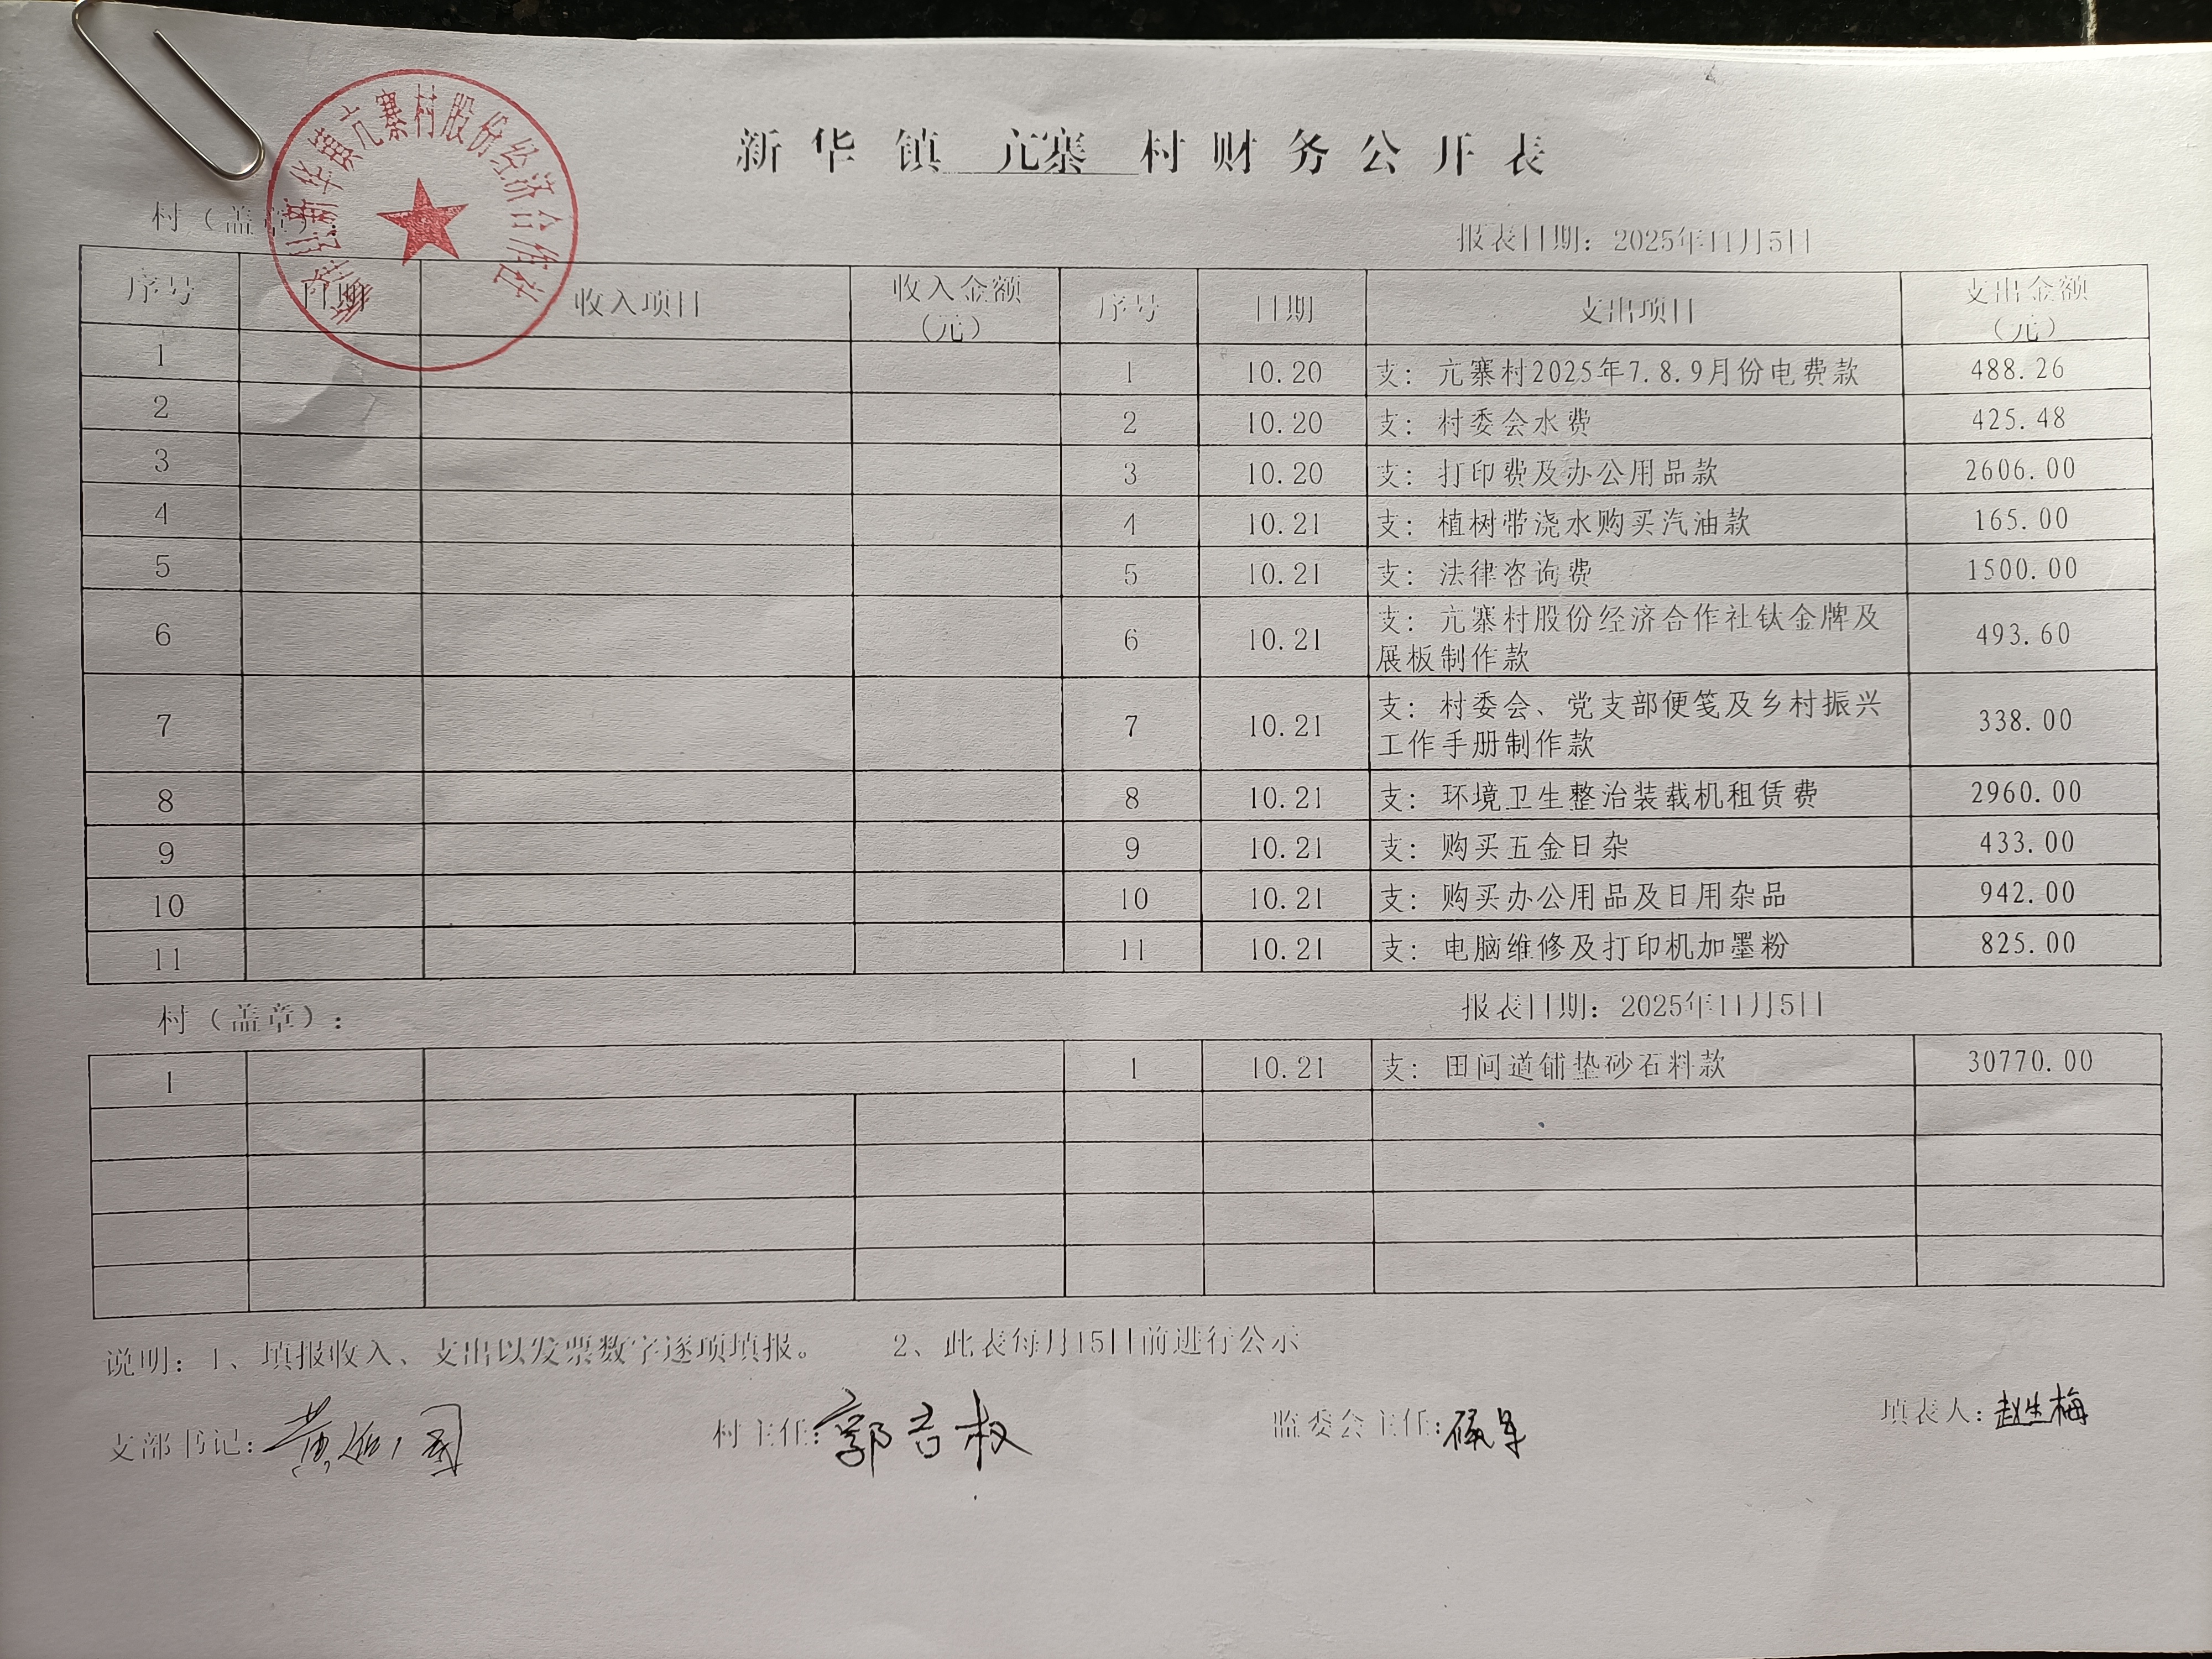 新华镇 亢寨 村财务公开表
新华镇亢寨村股份经济合作社
村（盖章）
报表日期：2025年11月5日
序号 日期 收入项目 收入金额（元） 序号 日期 支出项目 支出金额（元）
1 1 10.20 支：亢寨村2025年7.8.9月份电费款 488.26
2 2 10.20 支：村委会水费 425.48
3 3 10.20 支：打印费及办公用品款 2606.00
4 4 10.21 支：植树带浇水购买汽油款 165.00
5 5 10.21 支：法律咨询费 1500.00
6 6 10.21 支：亢寨村股份经济合作社钛金牌及
展板制作款 493.60
7 7 10.21 支：村委会、党支部便笺及乡村振兴
工作手册制作款 338.00
8 8 10.21 支：环境卫生整治装载机租赁费 2960.00
9 9 10.21 支：购买五金日杂 433.00
10 10 10.21 支：购买办公用品及日用杂品 942.00
11 11 10.21 支：电脑维修及打印机加墨粉 825.00
村（盖章）：
报表日期：2025年11月5日
1 1 10.21 支：田间道铺垫砂石料款 30770.00
说明：1、填报收入、支出以发票数字逐项填报。 2、此表每月15日前进行公示
支部书记： 村主任： 监委会主任： 填表人：赵生梅